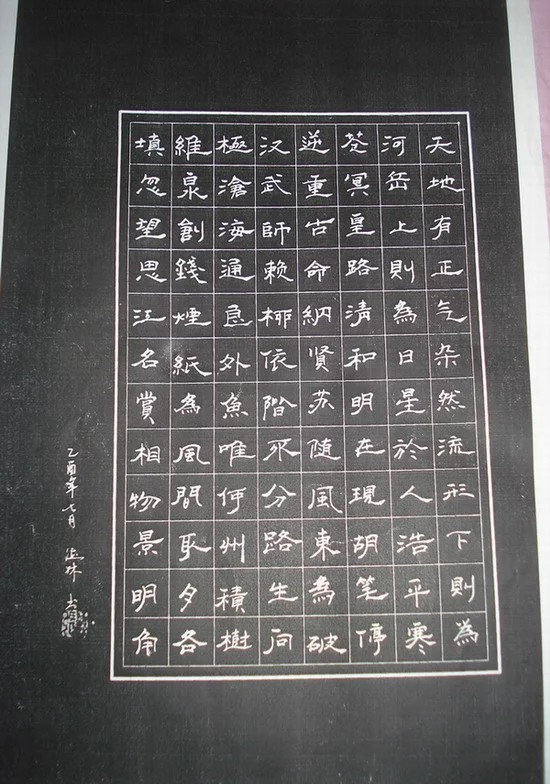 天地有正气杂然流形下則為
河岳上則為日星於人浩平寒
苍冥皇路清和明在現胡笔停
逆重古命納賢苏随風東為破
汉武師赖柳依階死分路生向
極滄海通息外魚唯何州積樹
維泉創錢煙紙為風間取夕各
填忽望思江名賞相物景明角
乙酉年七月